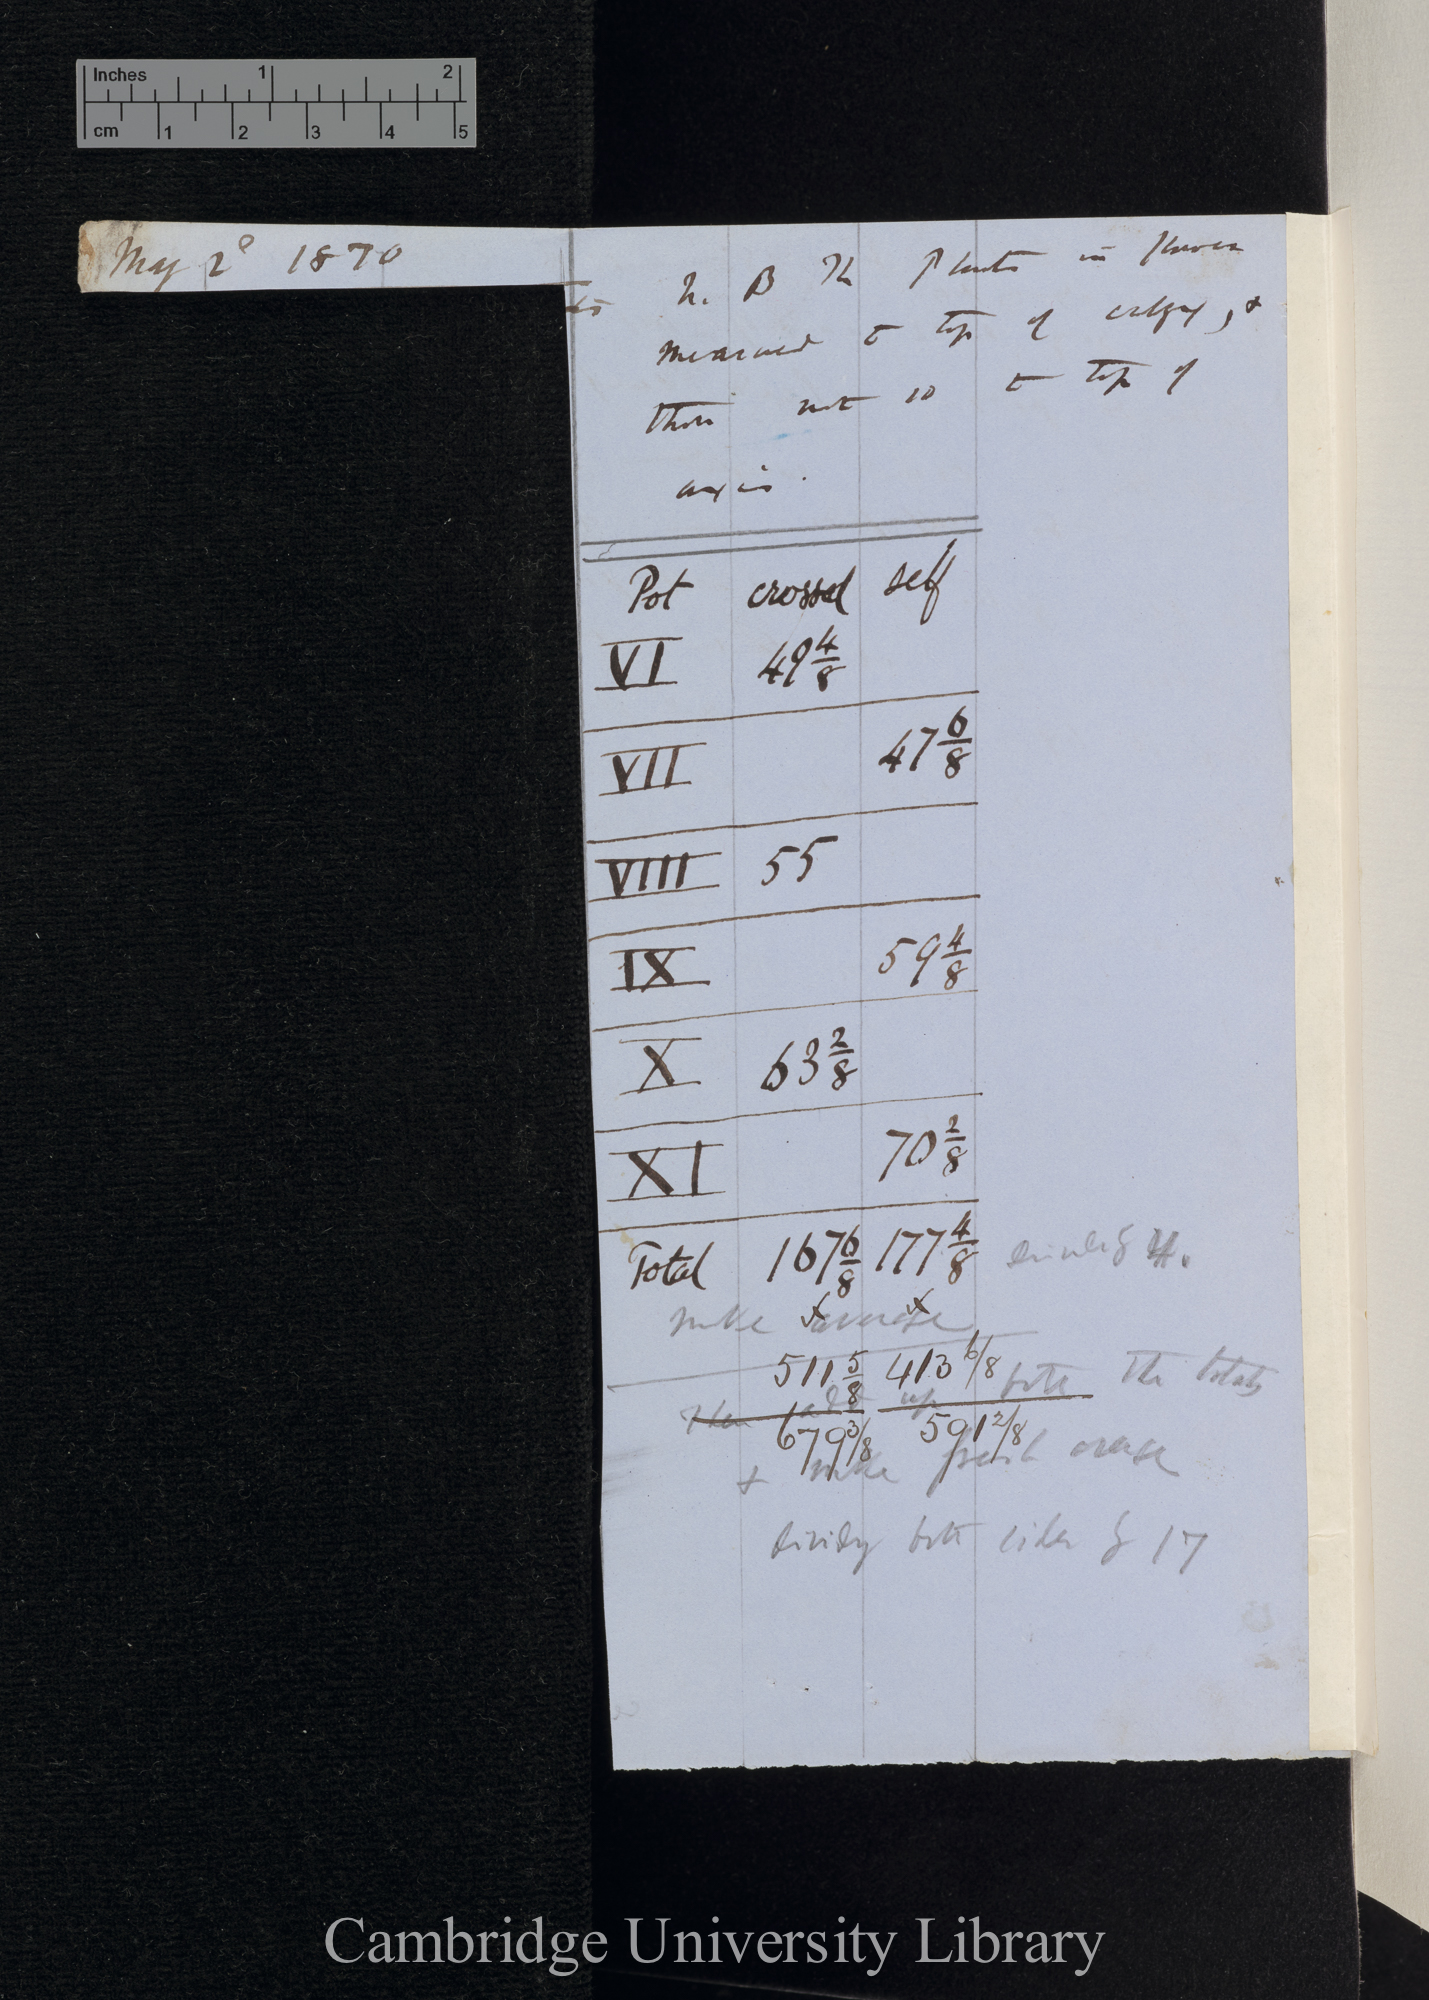 Inches 1 2
cm 1 2 3 4 5
May 2° 1870
N. B The Plants in flower
measured to top of calyx, &
those not so to top of
axis.
Pot crossed self
VI 49 4/8
VII 47 6/8
VIII 55
IX 59 4/8
X 63 2/8
XI 70 2/8
Total 167 6/8 177 4/8 divide by 4.
x x
make average
511 5/8 413 6/8
Then add up both the totals
679 3/8 591 2/8
& make fresh average
dividing both sides by 17
Cambridge University Library